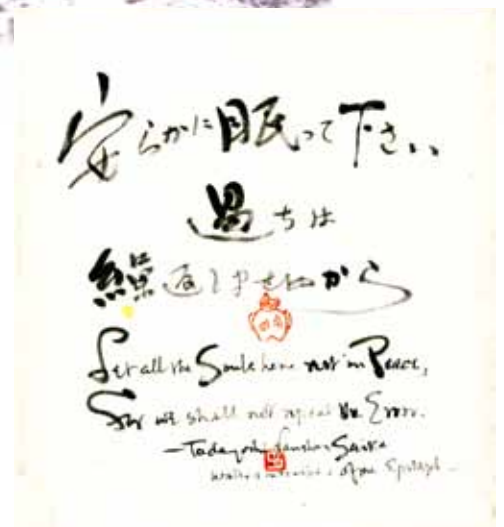 安らかに眠って下さい
過ちは
繰返しませぬから
Let all the Souls here rest in Peace,
For we shall not repeat the Error.
—Tadayoshi Saika
of the Epitaph